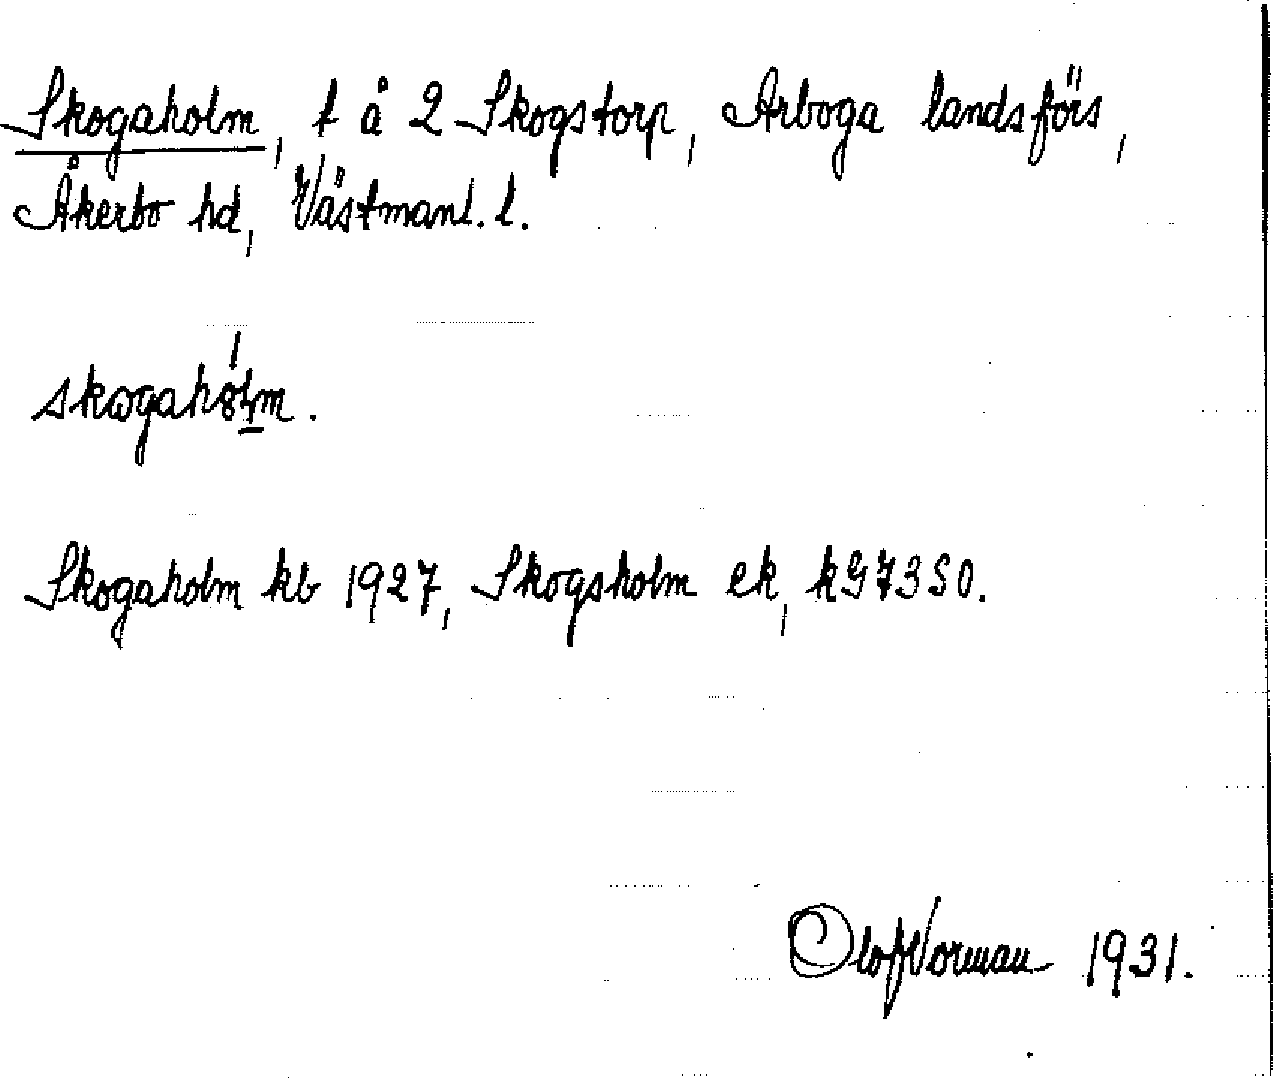 Skogaholm, t å 2 Skogstorp, Arboga landsförs,
Åkerbo hd, Västmanl. l.
skogahólm.
Skogaholm kb 1927, Skogsholm ek, kG7350.
Olof Norman 1931.